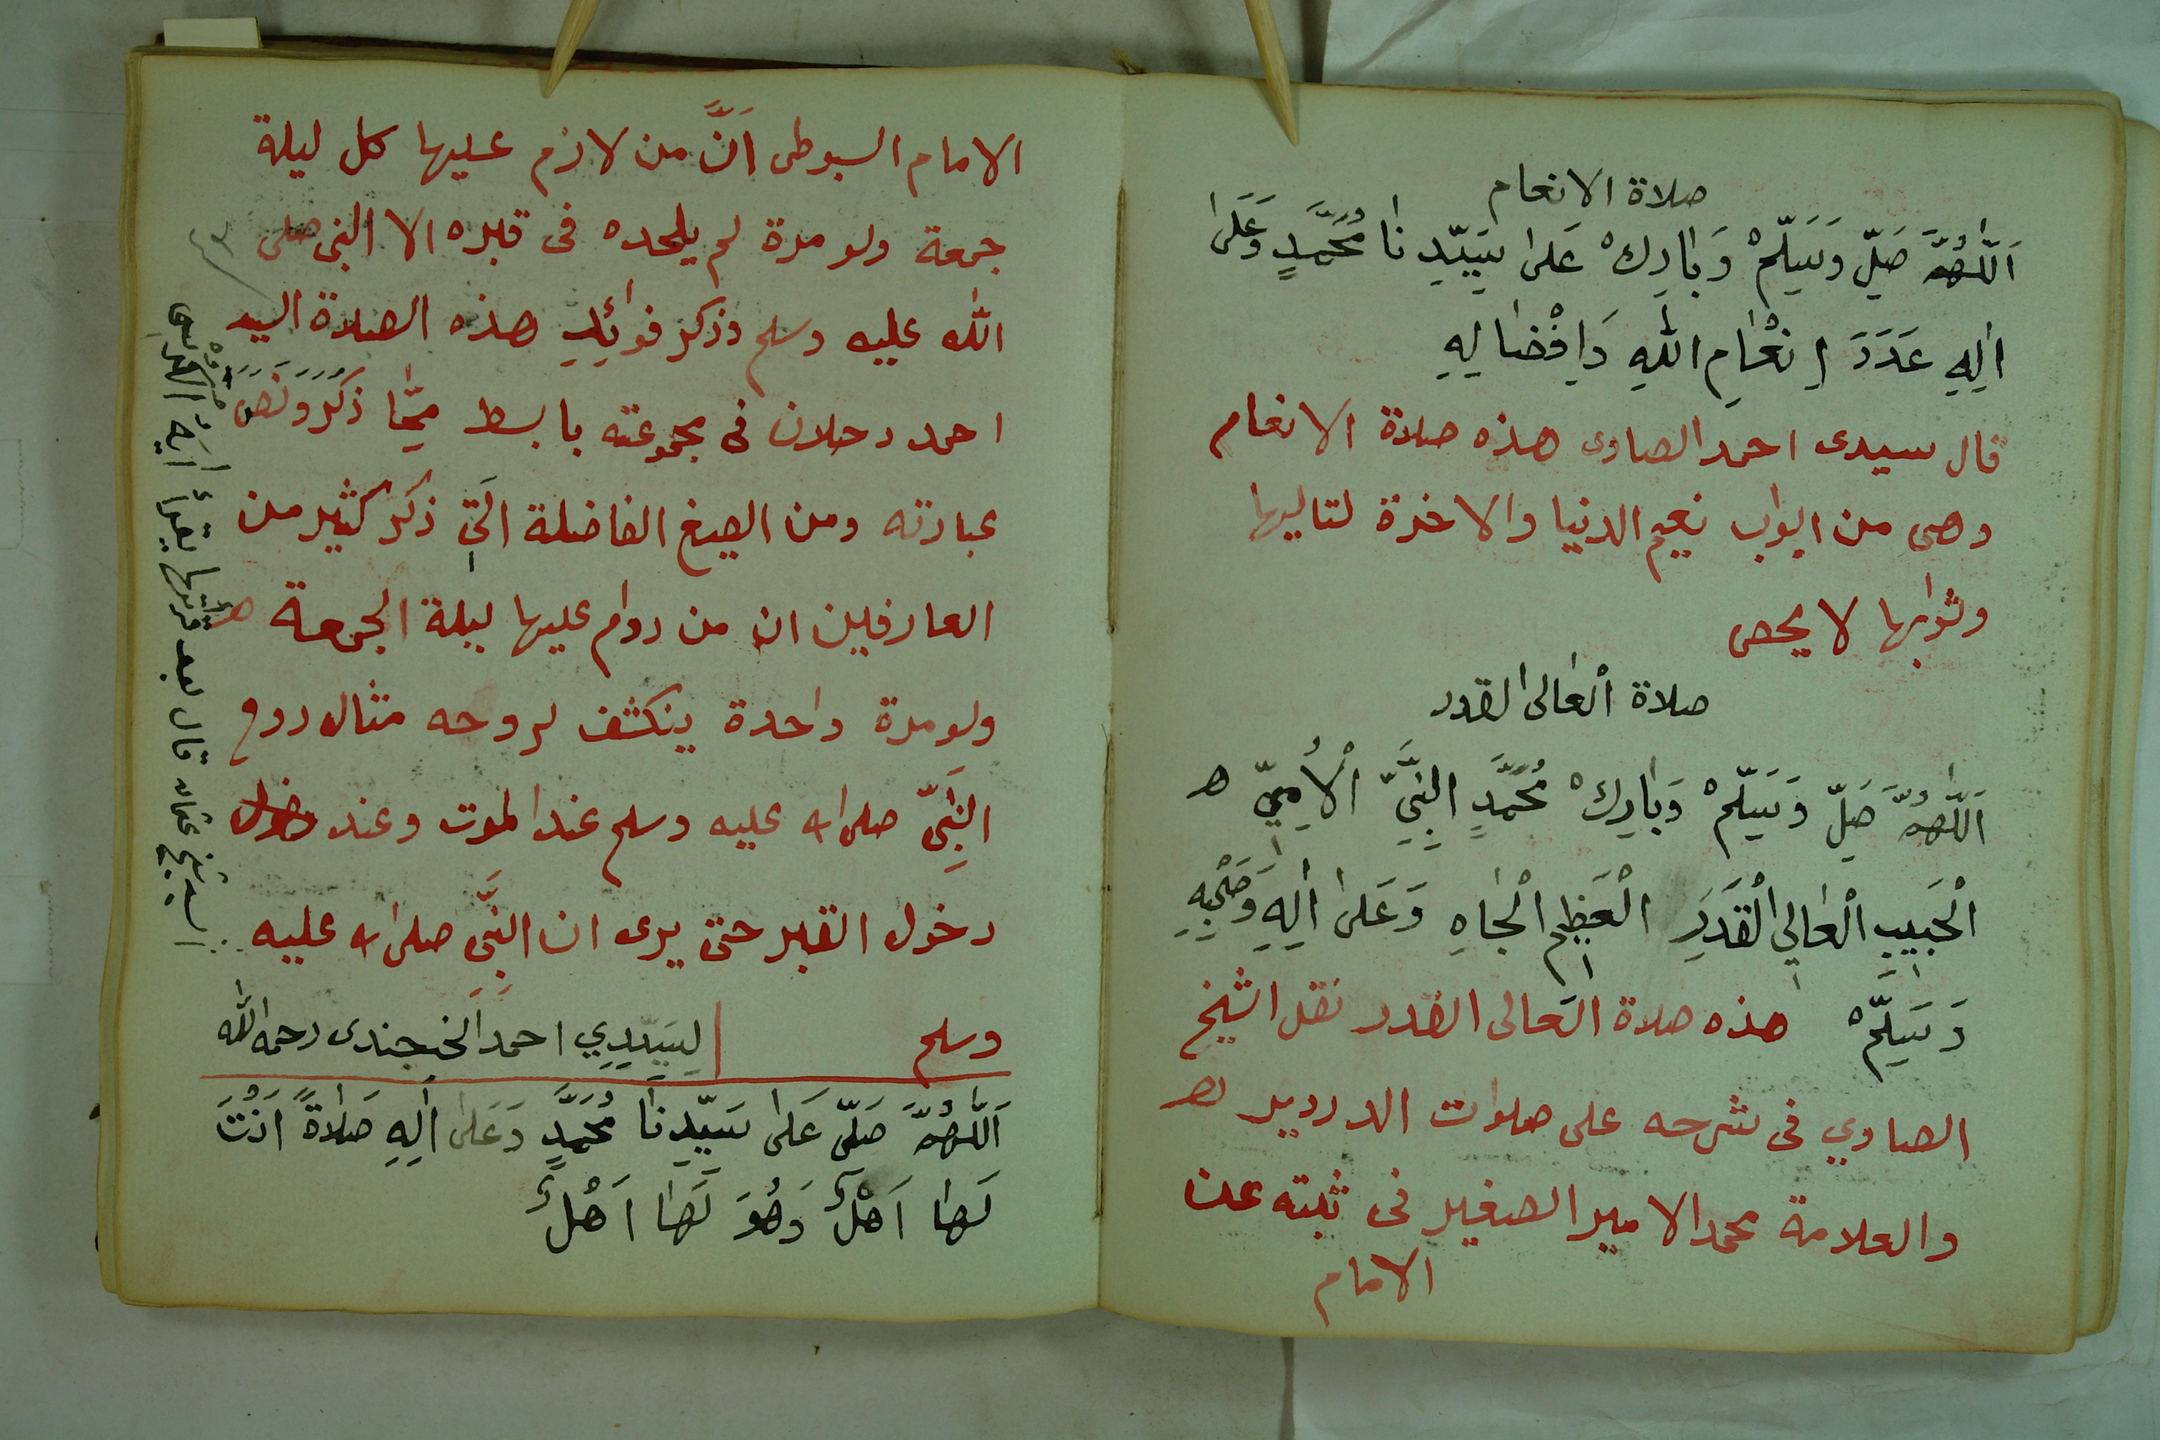 صلاة الانعام
اَللّٰهُمَّ صَلِّ وَسَلِّمْ وَبَارِكْ عَلىٰ سَيِّدِنَا مُحَمَّدٍ وَعَلىٰ
اٰلِهِ عَدَدَ اِنْعَامِ اللّٰهِ وَاِفْضَالِهِ
قال سيدى احمد الصاوى هذه صلاة الانعام
وهى من ابواب نعيم الدنيا والاخرة لتاليها
وثوابها لا يحصى
صلاة العالى القدر
اَللّٰهُمَّ صَلِّ وَسَلِّمْ وَبَارِكْ مُحَمَّدٍ النَّبِيِّ الْاُمِيِّ ه
الْحَبِيبِ الْعَالِي الْقَدَرِ الْعَظِيمِ الْجَاهِ وَعَلىٰ اٰلِهِ وَصَحْبِهِ
وَسَلِّمْ هذه صلاة العالى القدر نقل الشيخ
الصاوي فى شرحه على صلوات الدردير
والعلامة محمد الامير الصغير فى ثبته عن
الامام
الامام السيوطى اَنَّ من لازم عليها كل ليلة
جمعة ولو مرة لم يلحده فى قبره الا النبى صلى
الله عليه وسلم وذكر فوائِدِ هذه الصلاة السيد
احمد دحلان فى مجموعته بابسط مِمَّا ذَكَرَ وَنَصَّ
عبارته ومن الصيغ الفاضلة الَتِي ذكر كثير من
العارفين ان من داوم عليها ليلة الجمعة ه
ولو مرة واحدة ينكشف لروحه مثال روح
النَّبِيِّ صلى الله عليه وسلم عند الموت وعند دخول
دخول القبر حتى يرى ان النَّبِيِّ صلى الله عليه
وسلم
لِسَيِّدِي احمد الخجندى رحمه الله
اَللّٰهُمَّ صَلِّى عَلىٰ سَيِّدِنَا مُحَمَّدٍ وَعَلىٰ اٰلِهِ صَلَاةً اَنْتَ
لَهَا اَهْلٌ وَهُوَ لَهَا اَهْلٌ